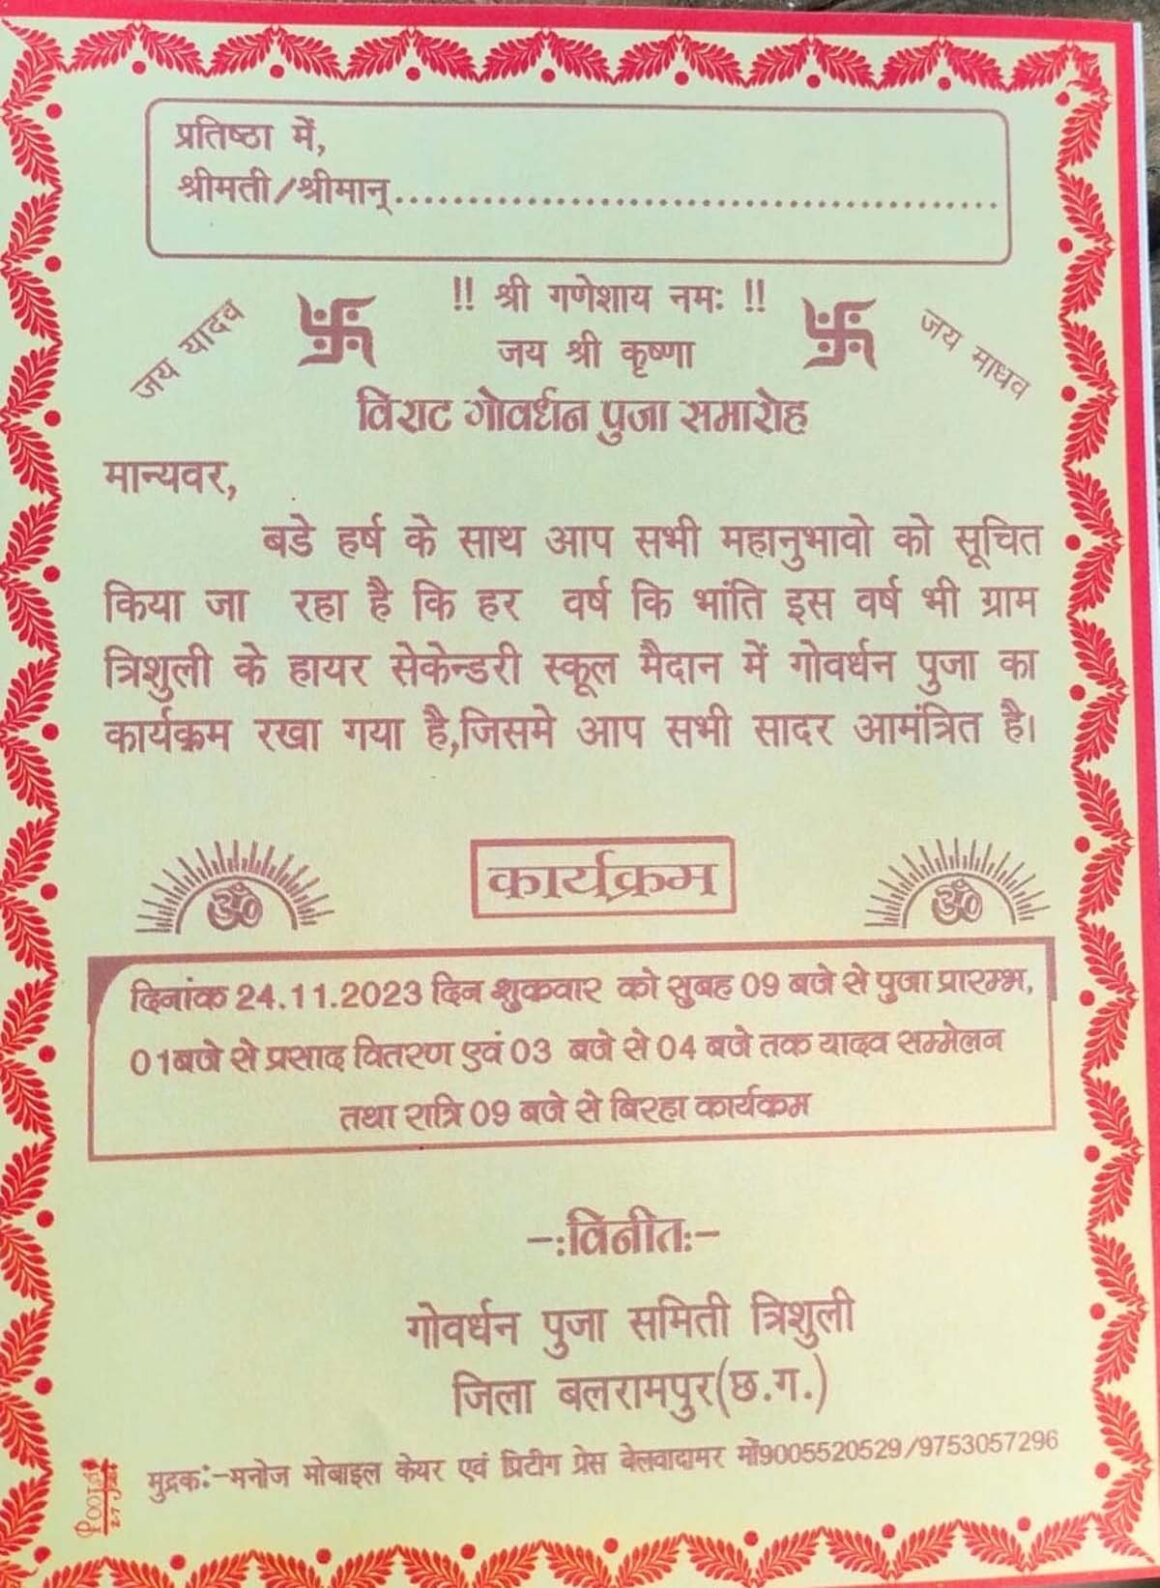 प्रतिष्ठा में,
श्रीमती/श्रीमान्..........................................
!! श्री गणेशाय नमः !!
जय यादव
जय श्री कृष्णा
जय माधव
विराट गोवर्धन पुजा समारोह
मान्यवर,
बडे हर्ष के साथ आप सभी महानुभावो को सूचित
किया जा रहा है कि हर वर्ष कि भांति इस वर्ष भी ग्राम
त्रिशुली के हायर सेकेन्डरी स्कूल मैदान में गोवर्धन पुजा का
कार्यक्रम रखा गया है,जिसमे आप सभी सादर आमंत्रित है।
ॐ
कार्यक्रम
ॐ
दिनांक 24.11.2023 दिन शुकवार को सुबह 09 बजे से पुजा प्रारम्भ,
01बजे से प्रसाद वितरण एवं 03 बजे से 04 बजे तक यादव सम्मेलन
तथा रात्रि 09 बजे से बिरहा कार्यकम
-:विनीत:-
गोवर्धन पुजा समिती त्रिशुली
जिला बलरामपुर(छ.ग.)
मुद्रक:-मनोज मोबाइल केयर एवं प्रिटीग प्रेस वेलवादामर मों9005520529/9753057296